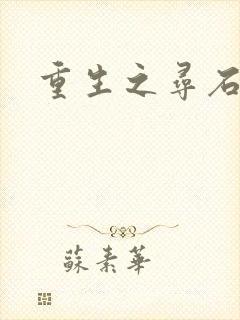 重生之尋石
蘇素華